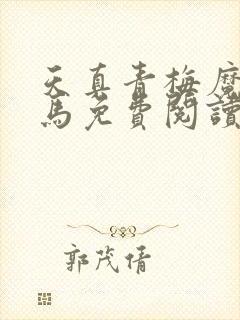 天真青梅魔
馬免費閱讀
郭茂倩